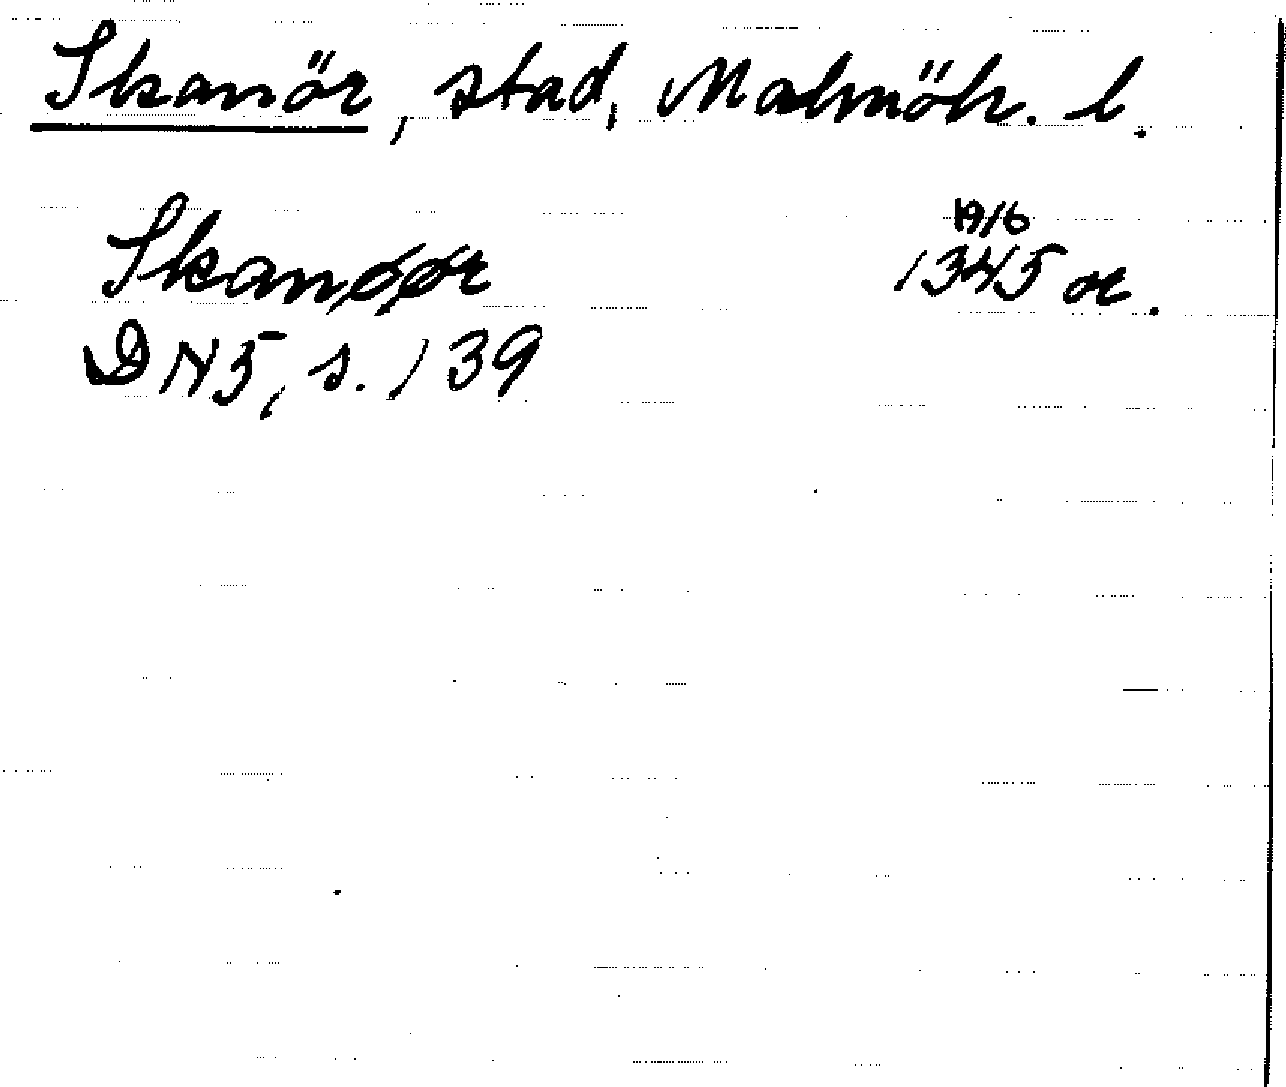 Skanör, stad, Malmöh. l.
Skanøør 19/6 1345 or.
DN5, s. 139